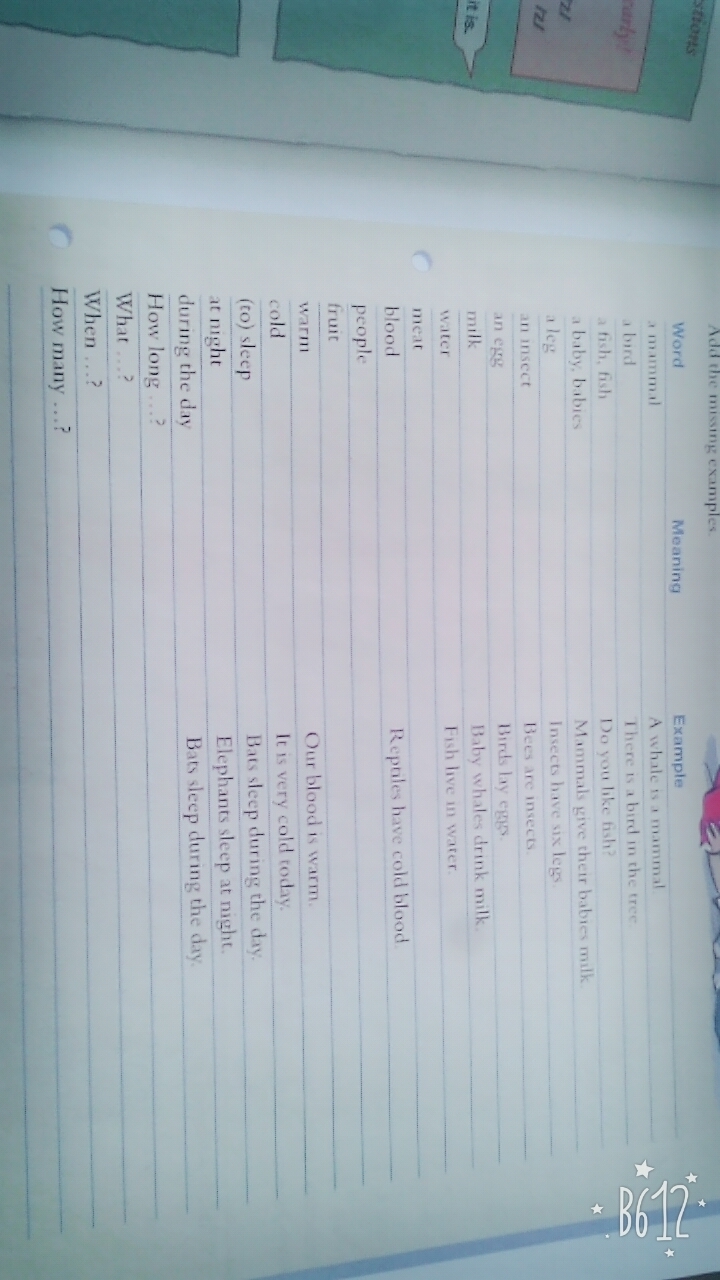 estions
early?
it is.
Add the missing examples.
Word Meaning Example
a mammal A whale is a mammal
a bird There is a bird in the tree
a fish, fish Do you like fish?
a baby, babies Mammals give their babies milk.
a leg Insects have six legs.
an insect Bees are insects.
an egg Birds lay eggs.
milk Baby whales drink milk.
water Fish live in water.
meat
blood Reptiles have cold blood.
people
fruit
warm Our blood is warm.
cold It is very cold today.
(to) sleep Bats sleep during the day.
at night Elephants sleep at night.
during the day Bats sleep during the day.
How long ...?
What ...?
When ...?
How many ...?
B612